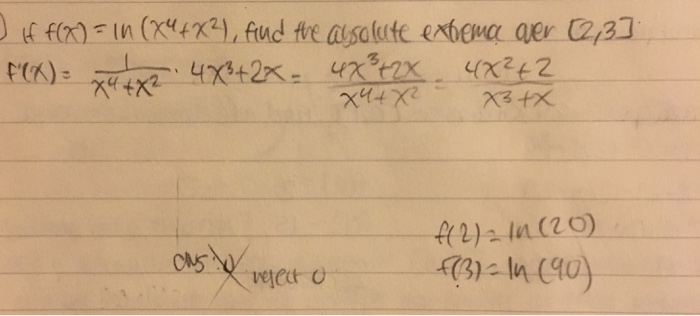 ) If f(x) = ln (x⁴+x²), find the absolute extrema over [2,3]
f'(x) = 1/(x⁴+x²) · 4x³+2x = (4x³+2x)/(x⁴+x²) = (4x²+2)/(x³+x)
f(2) = ln (20)
CNS: 0 reject 0
f(3) = ln (90)